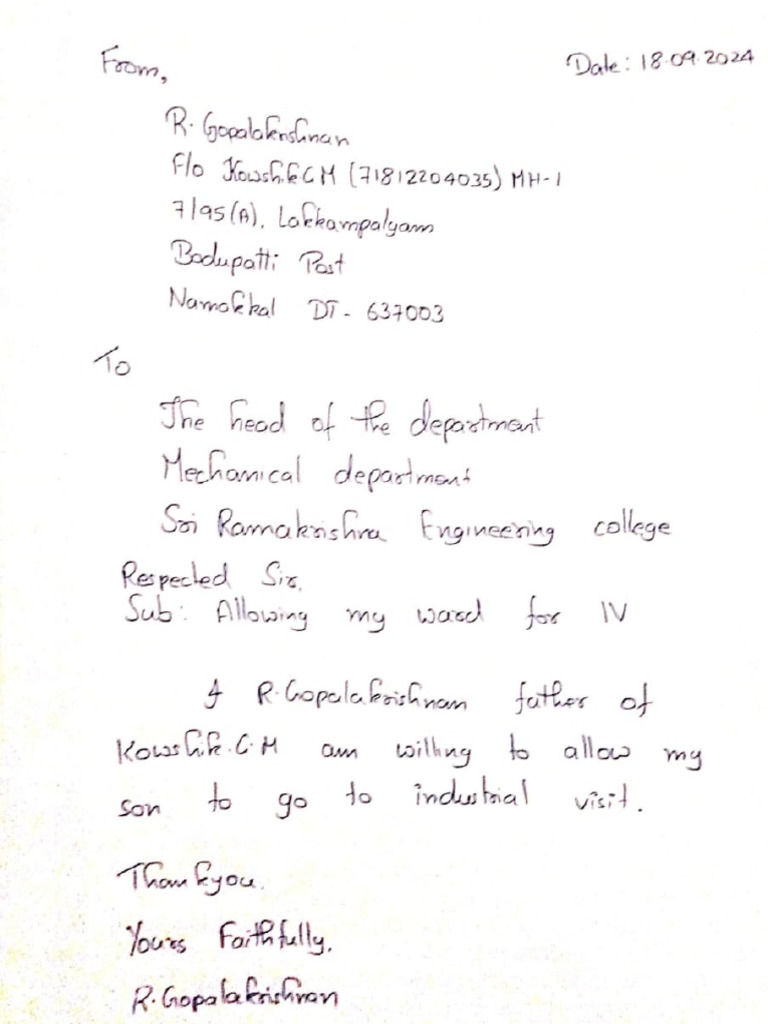 From,
Date: 18.09.2024
R. Gopalakrishnan
F/o Kowshik C M (71812204035) MH-1
7/95(A), Lakkampalyam
Bodupatti Post
Namakkal DT - 637003
To
The head of the department
Mechanical department
Sri Ramakrishna Engineering college
Respected Sir,
Sub: Allowing my ward for IV
I R. Gopalakrishnan father of
Kowshik.C.M am willing to allow my
son to go to industrial visit.
Thankyou.
Yours Faithfully,
R. Gopalakrishnan